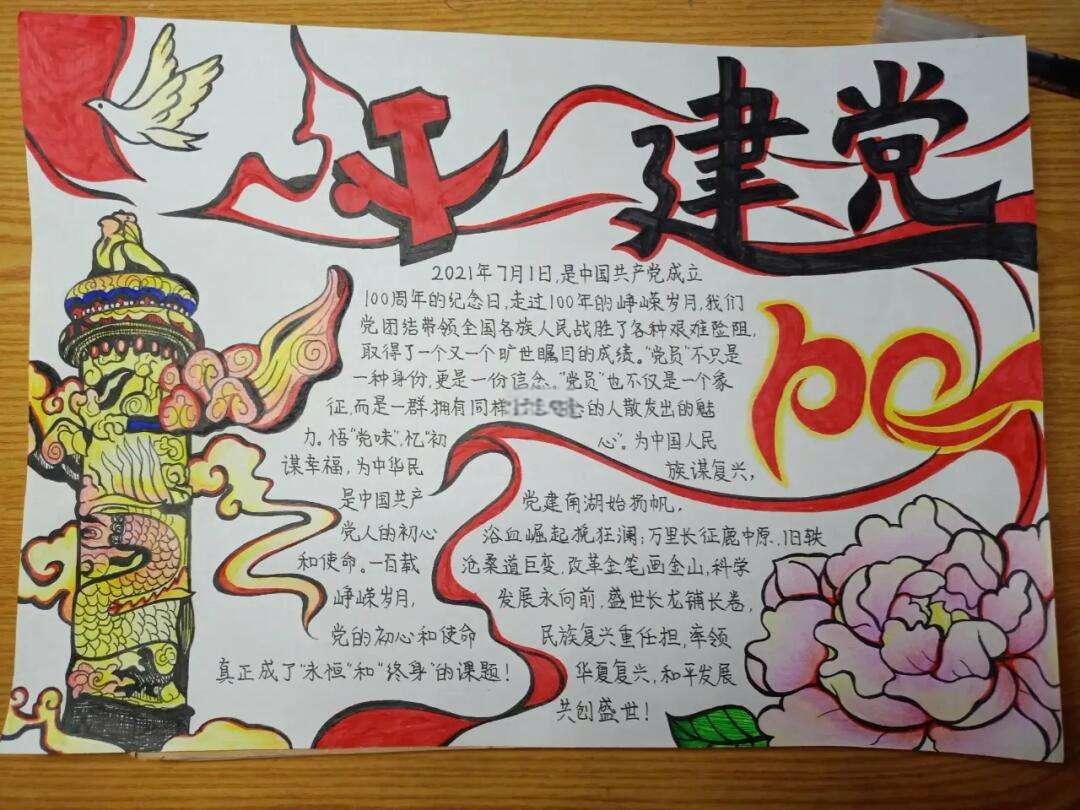 建党
2021年7月1日,是中国共产党成立
100周年的纪念日,走过100年的峥嵘岁月,我们
党团结带领全国各族人民战胜了各种艰难险阻,
取得了一个又一个旷世瞩目的成绩。"党员"不只是
一种身份,更是一份信念。"党员"也不仅是一个象
征,而是一群拥有同样的人散发出的魅
力。悟"党味",忆"初心"。为中国人民
谋幸福,为中华民族谋复兴,
是中国共产
党人的初心
和使命。一百载
峥嵘岁月,
党的初心和使命
真正成了"永恒"和"终身"的课题!
100
党建南湖始扬帆,
浴血崛起挽狂澜;万里长征鹿中原,旧轶
沧柔道巨变,改革金笔画金山,科学
发展永向前,盛世长龙铺长卷,
民族复兴重任担,率领
华夏复兴,和平发展
共创盛世!